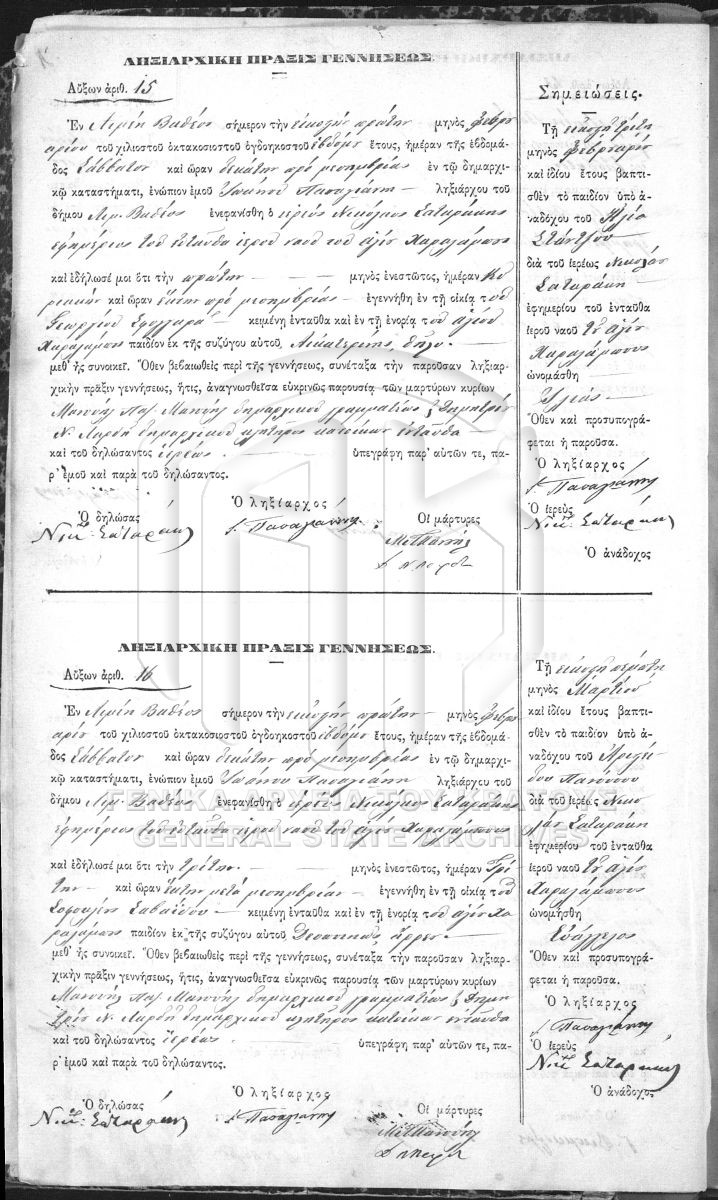 ΛΗΞΙΑΡΧΙΚΗ ΠΡΑΞΙΣ ΓΕΝΝΗΣΕΩΣ
Αὔξων ἀριθ. 15
Ἐν Λιμένι Βαθέος σήμερον τὴν εἰκοστὴν πρώτην μηνὸς Φεβρου
αρίου τοῦ χιλιοστοῦ ὀκτακοσιοστοῦ ὀγδοηκοστοῦ ἑβδόμου ἔτους, ἡμέραν τῆς ἑβδομά-
δος Σάββατον καὶ ὥραν δεκάτην πρό μεσημβρίας ἐν τῷ δημαρχι-
κῷ καταστήματι, ἐνώπιον ἐμοῦ Ἰωάννου Παπαγιάννη ληξιάρχου τοῦ
δήμου Λιμ. Βαθέος ἐνεφανίσθη ὁ ἱερεύς Νικόλαος Σαταράκης
ἐφημέριος τοῦ ἐνταῦθα ἱεροῦ ναοῦ τοῦ ἁγίου Χαραλάμπους
καὶ ἐδήλωσέ μοι ὅτι τὴν πρώτην μηνὸς ἐνεστῶτος, ἡμέραν Κυ
ριακήν καὶ ὥραν ἕκτην πρό μεσημβρίας ἐγεννήθη ἐν τῇ οἰκίᾳ τοῦ
Γεωργίου κειμένῃ ἐνταῦθα καὶ ἐν τῇ ἐνορίᾳ τοῦ ἁγίου
Χαραλάμπους παιδίον ἐκ τῆς συζύγου αὐτοῦ Αἰκατερίνης
μεθ' ἧς συνοικεῖ. Ὅθεν βεβαιωθεὶς περὶ τῆς γεννήσεως, συνέταξα τὴν παροῦσαν ληξιαρ-
χικὴν πρᾶξιν γεννήσεως, ἥτις, ἀναγνωσθεῖσα εὐκρινῶς παρουσίᾳ τῶν μαρτύρων κυρίων
Μανουήλ δημαρχικοῦ γραμματέως & Δημητρίου
Ν. δημαρχικοῦ κλητῆρος κατοίκων ἐνταῦθα
καὶ τοῦ δηλώσαντος ἱερέως ὑπεγράφη παρ' αὐτῶν τε, πα-
ρ' ἐμοῦ καὶ παρὰ τοῦ δηλώσαντος.
Ὁ δηλώσας
Ὁ ληξίαρχος
Οἱ μάρτυρες
Νικ. Σαταράκης
Ι. Παπαγιάννης
Σημειώσεις.
Τῇ εἰκοστῇ τρίτῃ
μηνὸς Φεβρουαρίου
καὶ ἰδίου ἔτους βαπτι-
σθὲν τὸ παιδίον ὑπὸ ἀ-
ναδόχου τοῦ Ἠλία
διὰ τοῦ ἱερέως Νικολάου
Σαταράκη
ἐφημερίου τοῦ ἐνταῦθα
ἱεροῦ ναοῦ τοῦ ἁγίου
Χαραλάμπους
ὠνομάσθη
Ὅθεν καὶ προσυπογρά-
φεται ἡ παροῦσα.
Ὁ ληξίαρχος
Ι. Παπαγιάννης
Ὁ ἱερεὺς
Νικ. Σαταράκης
Ὁ ἀνάδοχος
ΛΗΞΙΑΡΧΙΚΗ ΠΡΑΞΙΣ ΓΕΝΝΗΣΕΩΣ.
Αὔξων ἀριθ. 16
Ἐν Λιμένι Βαθέος σήμερον τὴν εἰκοστήν πρώτην μηνὸς Φεβρου
αρίου τοῦ χιλιοστοῦ ὀκτακοσιοστοῦ ὀγδοηκοστοῦ ἑβδόμου ἔτους, ἡμέραν τῆς ἑβδομά-
δος Σάββατον καὶ ὥραν δεκάτην πρό μεσημβρίας ἐν τῷ δημαρχι-
κῷ καταστήματι, ἐνώπιον ἐμοῦ Ἰωάννου Παπαγιάννη ληξιάρχου τοῦ
δήμου Λιμ. Βαθέος ἐνεφανίσθη ὁ ἱερεύς Νικόλαος Σαταράκης
ἐφημέριος τοῦ ἐνταῦθα ἱεροῦ ναοῦ τοῦ ἁγίου Χαραλάμπους
καὶ ἐδήλωσέ μοι ὅτι τὴν τρίτην μηνὸς ἐνεστῶτος, ἡμέραν Τρί
την καὶ ὥραν ἕκτην μετά μεσημβρίαν ἐγεννήθη ἐν τῇ οἰκίᾳ τοῦ
κειμένῃ ἐνταῦθα καὶ ἐν τῇ ἐνορίᾳ τοῦ ἁγίου Χα
ραλάμπους παιδίον ἐκ τῆς συζύγου αὐτοῦ Δεσποινῆς ἄρρεν
μεθ' ἧς συνοικεῖ. Ὅθεν βεβαιωθεὶς περὶ τῆς γεννήσεως, συνέταξα τὴν παροῦσαν ληξιαρ-
χικὴν πρᾶξιν γεννήσεως, ἥτις, ἀναγνωσθεῖσα εὐκρινῶς παρουσίᾳ τῶν μαρτύρων κυρίων
Μανουήλ δημαρχικοῦ γραμματέως & Δημη
τρίου Ν. δημαρχικοῦ κλητῆρος κατοίκων ἐνταῦθα
καὶ τοῦ δηλώσαντος ἱερέως ὑπεγράφη παρ' αὐτῶν τε, πα-
ρ' ἐμοῦ καὶ παρὰ τοῦ δηλώσαντος.
Ὁ δηλώσας
Ὁ ληξίαρχος
Οἱ μάρτυρες
Νικ. Σαταράκης
Ι. Παπαγιάννης
Τῇ εἰκοστῇ πέμπτῃ
μηνὸς Μαρτίου
καὶ ἰδίου ἔτους βαπτι-
σθὲν τὸ παιδίον ὑπὸ ἀ-
ναδόχου τοῦ
διὰ τοῦ ἱερέως Νικο
λάου Σαταράκη
ἐφημερίου τοῦ ἐνταῦθα
ἱεροῦ ναοῦ τοῦ ἁγίου
Χαραλάμπους
ὠνομάσθη
Εὐάγγελος
Ὅθεν καὶ προσυπογρά-
φεται ἡ παροῦσα.
Ὁ ληξίαρχος
Ι. Παπαγιάννης
Ὁ ἱερεὺς
Νικ. Σαταράκης
Ὁ ἀνάδοχος
ΓΕΝΙΚΑ ΑΡΧΕΙΑ ΤΟΥ ΚΡΑΤΟΥΣ
GENERAL STATE ARCHIVES